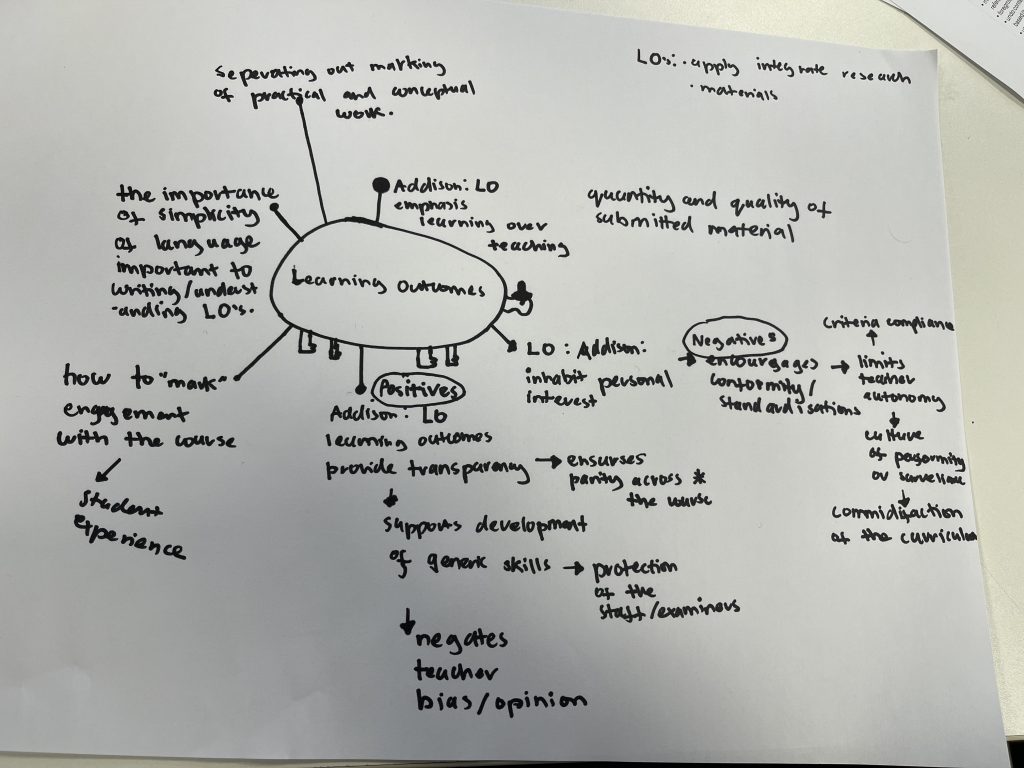 seperating out marking
of practical and conceptual
work.
LO's: · apply integrate research
· materials
the importance
of simplicity
of language
important to
writing/underst
-anding LO's.
Addison: LO
emphasis
learning over
teaching
quantity and quality of
submitted material
Learning Outcomes
how to "mark"
engagement
with the course
student
experience
Positives
Addison: LO
learning outcomes
provide transparency
ensurses
parity across *
the course
supports development
of generic skills
protection
of the
staff/examiners
negates
teacher
bias/opinion
LO: Addison:
inhabit personal
interest
Negatives
encourgages
conformity/
standardisations
criteria compliance
limits
teacher
autonomy
culture
of
or
of the curriculum